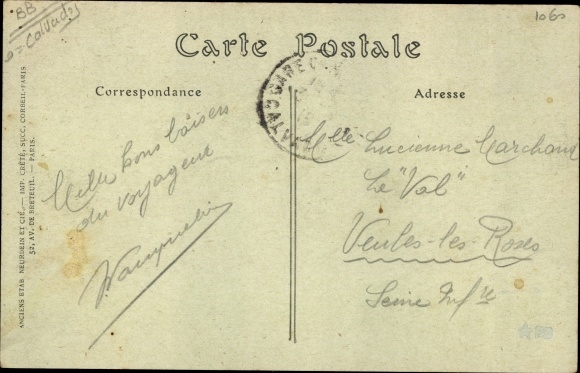 BB
Calvados
1060
Carte Postale
Correspondance
Adresse
Mille bons baisers
du voyageur
Mlle Lucienne Marchand
Le "Val"
Veules-les-Roses
Seine Infre
ANCIENS ETAB. NEURDEIN ET CIE. — IMP. CRÉTÉ, SUCC. CORBEIL-PARIS
52, AV. DE BRETEUIL. — PARIS.
GARE
CALVADOS